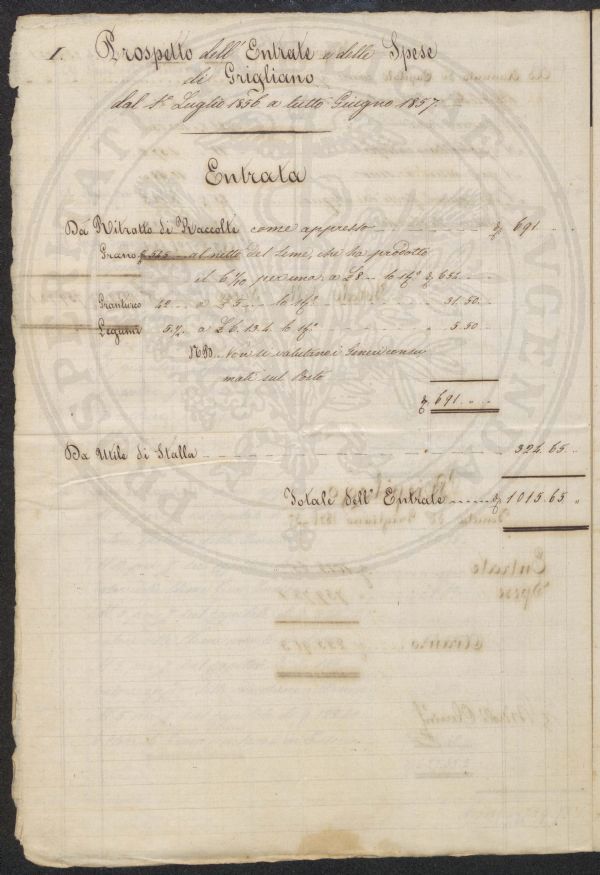 I. Prospetto dell' Entrate e delle Spese
di Grigliano
dal 1° Luglio 1856 a tutto Giugno 1857.
Entrata
Da Ritratto di Raccolte come appresso 691
Grano 545 al netto del seme, che ha prodotto
il 6 7/10 per uno a £8 lo st° 654
Granturco 42 a £5 lo st° 31.50
Legumi 5 1/2 a £6.13.4 lo st° 5.50
NB. Non si valutano i Generi consu
mati sul Posto
691
Da Utile di Stalla 324.65
Totale dell' Entrate 1015.65